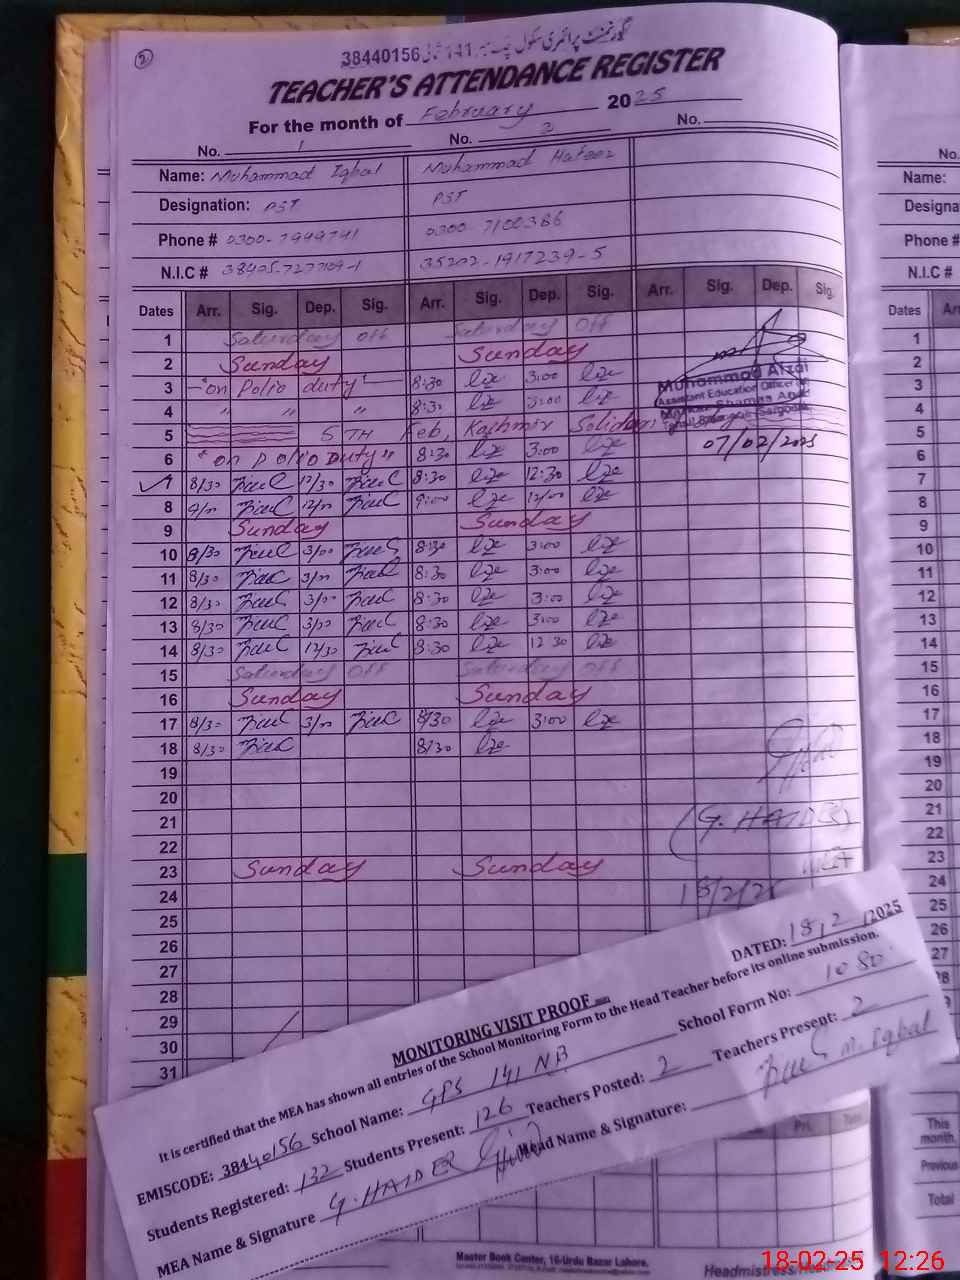 2
گورنمنٹ پرائمری سکول چک نمبر 141 شمالی 38440156
TEACHER'S ATTENDANCE REGISTER
For the month of February 2025
No. 1 No. 2 No.
Name: Muhammad Iqbal Muhammad Hafeez
Designation: PST PST
Phone # 0300-7949741 0300 7100386
N.I.C # 38405-7277109-1 35202-1917239-5
Dates Arr. Sig. Dep. Sig. Arr. Sig. Dep. Sig. Arr. Sig. Dep. Sig.
1 Saturday off Saturday off
2 Sunday Sunday
3 "on Polio duty" 8:30 3:00
4 " " " 8:30 3:00
5 5TH Feb, Kashmir Solidarity
6 "on Polio Duty" 8:30 3:00
7 8/30 12/30 8:30 12:30
8 9/00 12/00 9:00 12/00
9 Sunday Sunday
10 8/30 3/00 8:30 3:00
11 8/30 3/00 8:30 3:00
12 8/30 3/00 8:30 3:00
13 8/30 3/00 8:30 3:00
14 8/30 12/30 8:30 12 30
15 Saturday off Saturday off
16 Sunday Sunday
17 8/30 3/00 8/30 3:00
18 8/30 8/30
19
20
21
22
23 Sunday Sunday
24
25
26
27
28
29
30
31
Muhammad Afzal
Assistant Education Officer
07/02/2025
(G. HAIDER)
MEA
18/2/25
DATED: 18,2 /2025
MONITORING VISIT PROOF
It is certified that the MEA has shown all entries of the School Monitoring Form to the Head Teacher before its online submission.
EMISCODE: 38440156 School Name: GPS 141 NB School Form No: 1080
Students Registered: 132 Students Present: 126 Teachers Posted: 2 Teachers Present: 2
MEA Name & Signature G. HAIDER Head Name & Signature: M. Iqbal
Master Book Center, 16-Urdu Bazar Lahore.
Headmistress/Head
No.
Name:
Designa
Phone #
N.I.C #
Dates Arr
1
2
3
4
5
6
7
8
9
10
11
12
13
14
15
16
17
18
19
20
21
22
23
24
25
26
27
28
This month.
Previous
Total
18-02-25 12:26